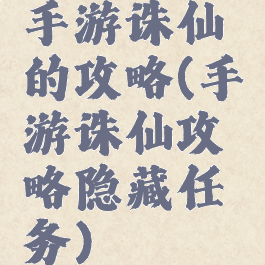 手游诛仙
的攻略(手
游诛仙攻
略隐藏任
务)